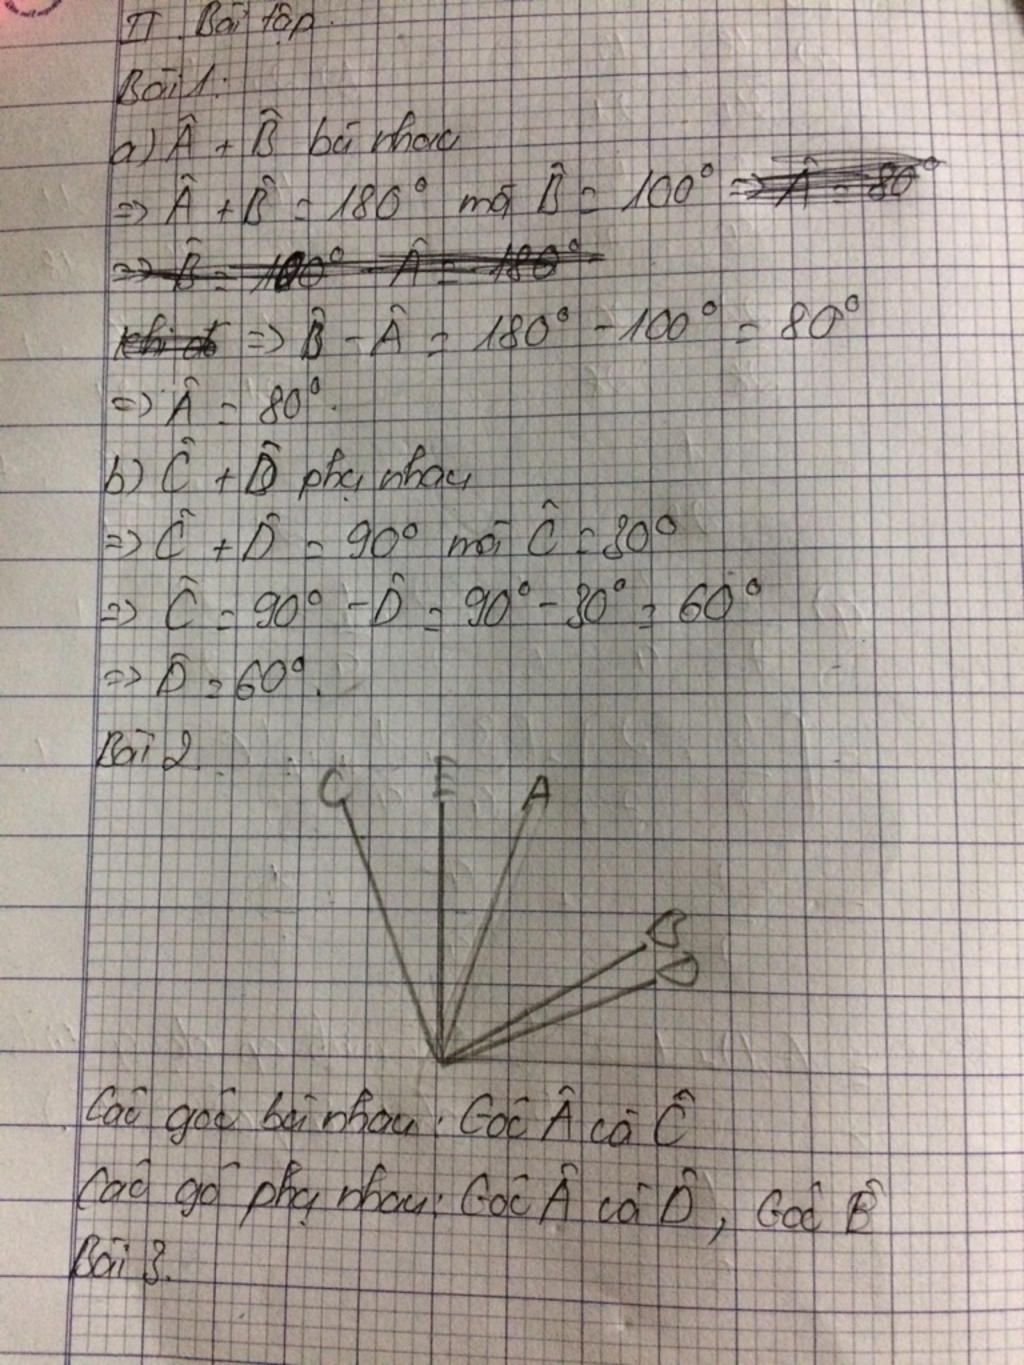 II. Bài tập.
Bài 1:
a) Â + B̂ bù nhau
=> Â + B̂ = 180° mà B̂ = 100° => Â = 80°
=> B̂ = 100° - Â = 180°
=> B̂ - Â = 180° - 100° = 80°
=> Â = 80°.
b) Ĉ + D̂ phụ nhau
=> Ĉ + D̂ = 90° mà Ĉ = 30°
=> Ĉ = 90° - D̂ = 90° - 30° = 60°
=> D̂ = 60°.
Bài 2.
C E A
B
D
Các góc bù nhau: Góc Â và Ĉ
Các gó phụ nhau: Góc Â và D̂, Góc Ê
Bài 3.